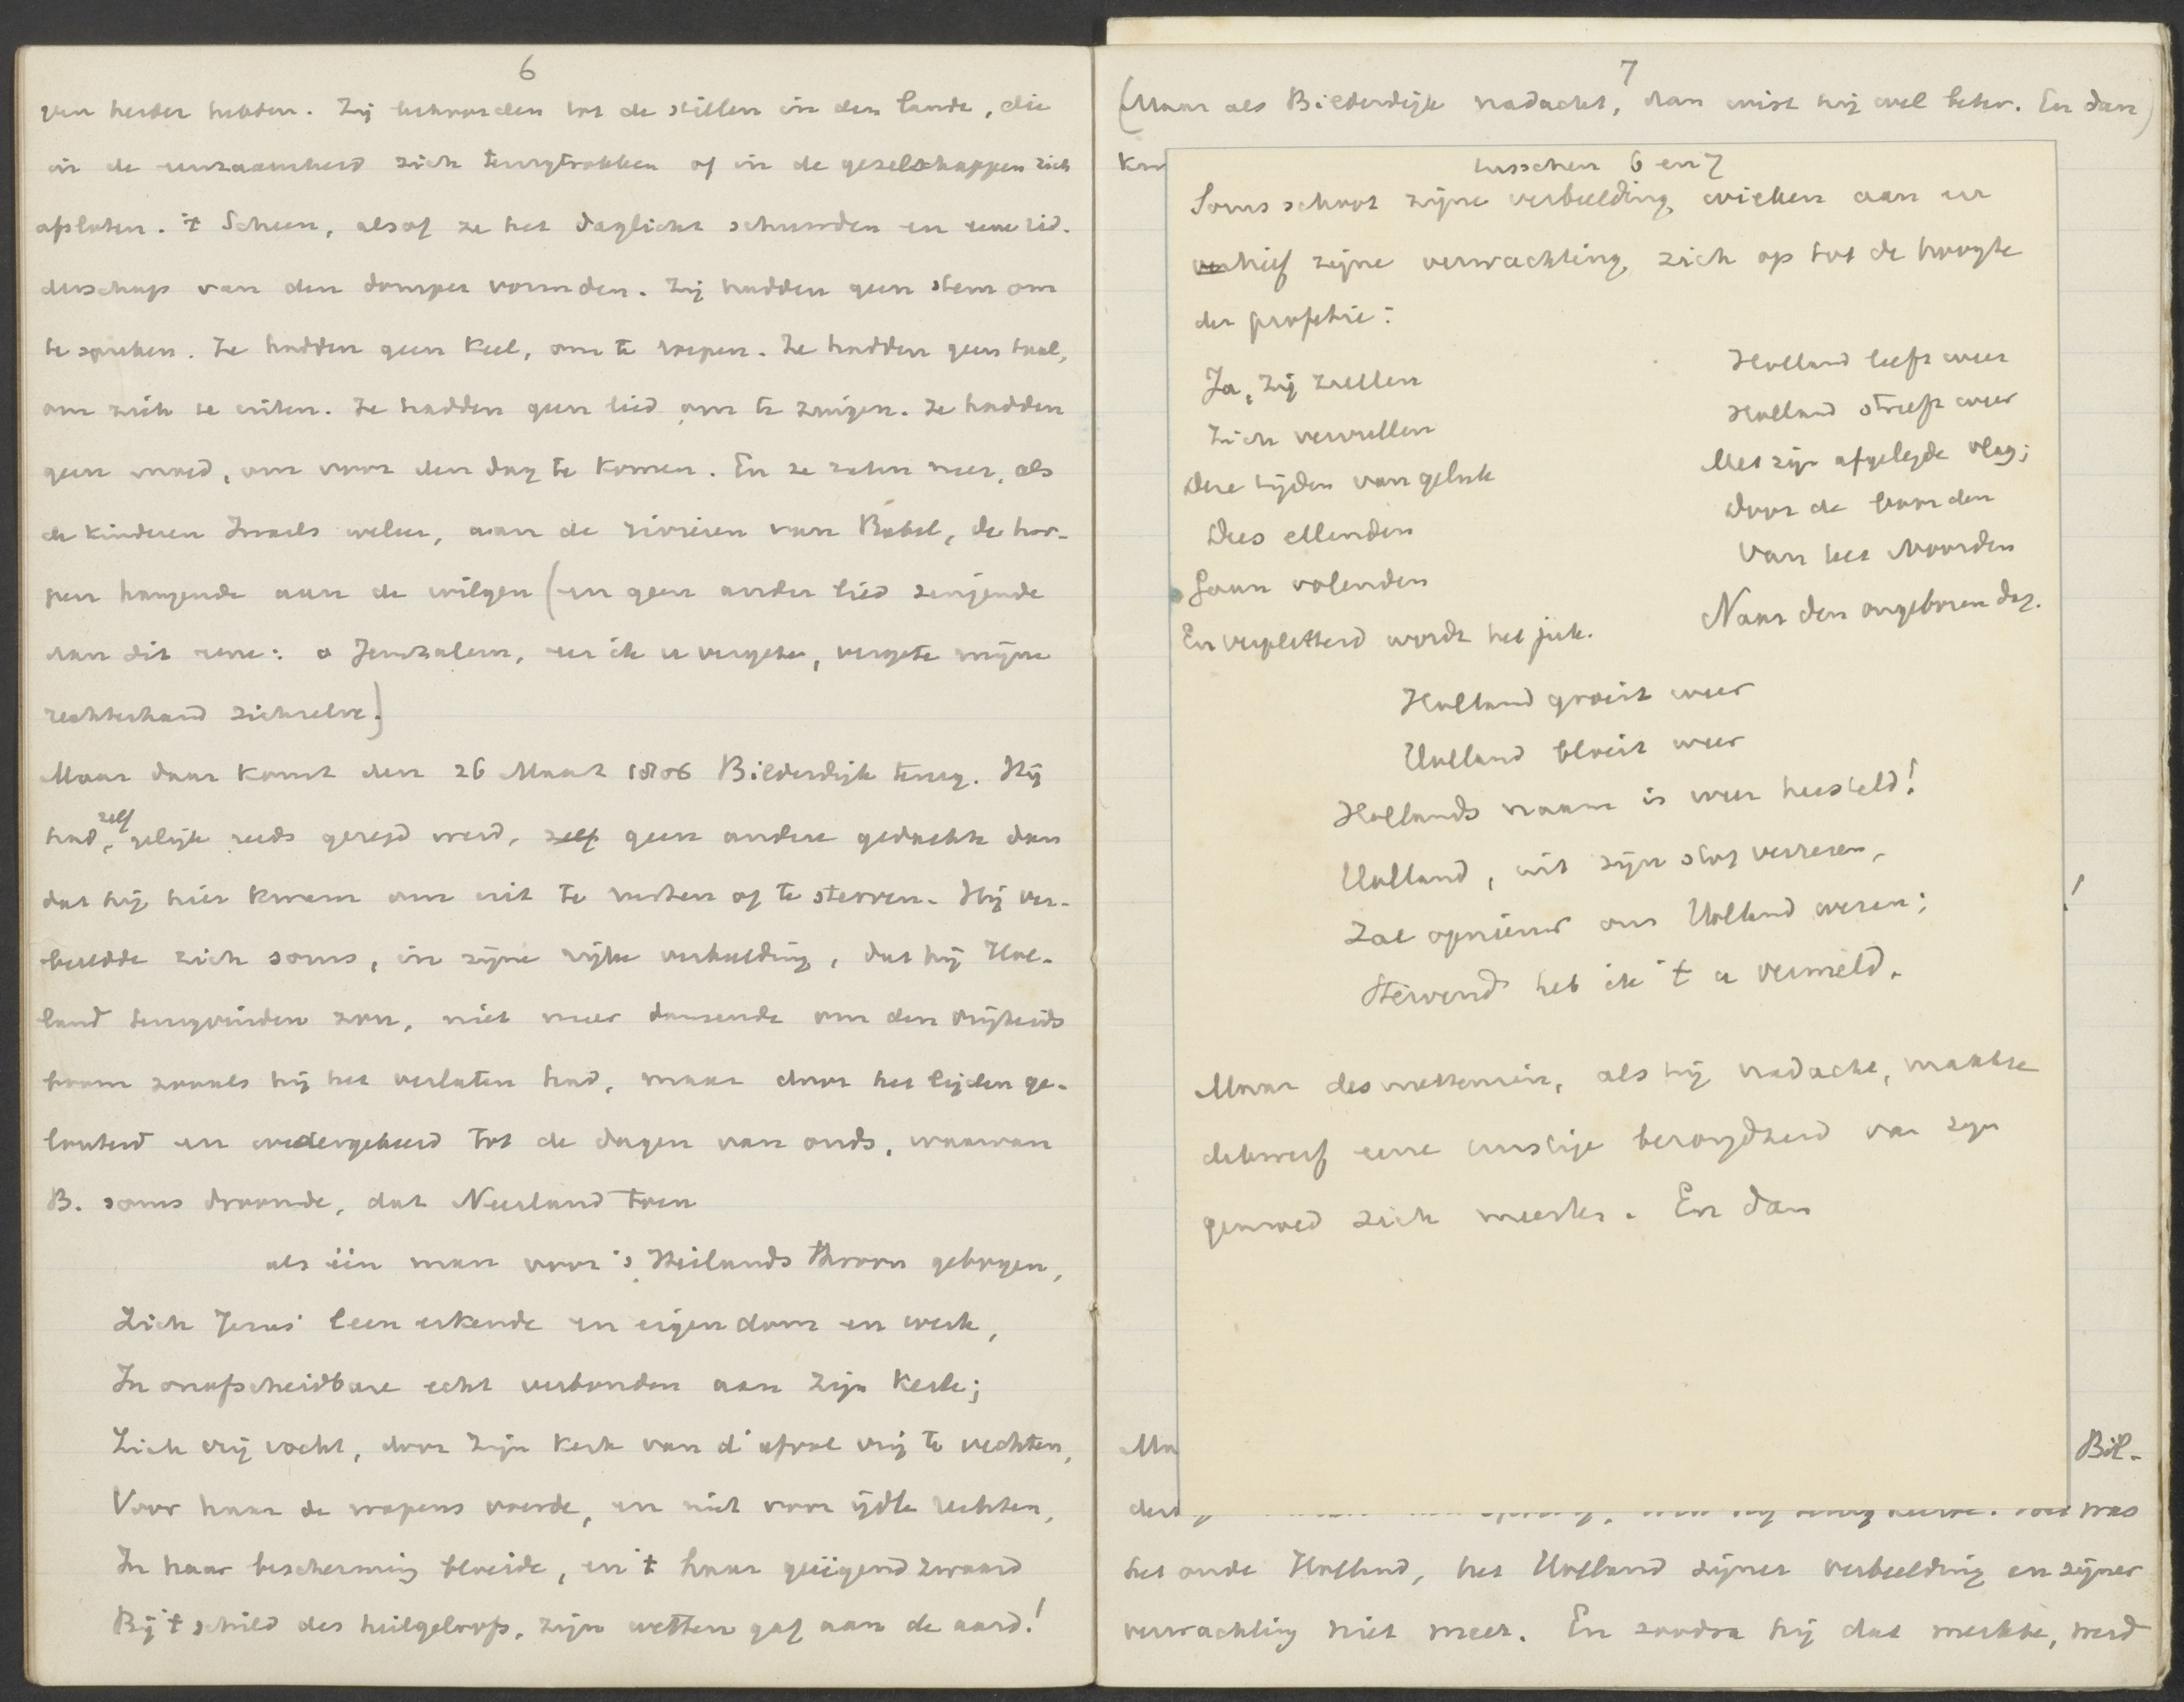 6
ven herder hebben. Zij behoorden tot de stillen in den lande, die
in de eenzaamheid zich terugtrokken of in de gezelschappen zich
afsloten. 't Scheen, alsof ze het daglicht schuwden en eene rid-
derschap van den domper vormden. Zij hadden geen stem om
te spreken. Ze hadden geen keel, om te roepen. Ze hadden geen taal,
om zich te uiten. Ze hadden geen lied om te zingen. Ze hadden
geen moed, om voor den dag te komen. En ze zaten neer, als
de kinderen Israels weleer, aan de rivieren van Babel, de har-
pen hangende aan de wilgen (en geen ander lied zingende
dan dit eene: o Jeruzalem, eer ik u vergete, vergete mijne
rechterhand zichzelve.)
Maar daar komt den 26 Maart 1806 Bilderdijk terug. Hij
had, zelf gelijk reeds gezegd werd, zelf geen andere gedachte dan
dat hij hier kwam om uit te rusten of te sterven. Hij ver-
beeldde zich soms, in zijne rijke verbeelding, dat hij Hol-
land terugvinden zou, niet meer dansende om den vrijheids
boom zooals hij het verlaten had, maar door het lijden ge-
louterd en wedergekeerd tot de dagen van ouds, waarvan
B. soms droomde, dat Neerland toen
als één man voor 's Heilands throon gebogen,
Zich Jezus' leen erkende en eigendom en werk,
In onafscheidbare echt verbonden aan zijn Kerk;
Zich vrij vocht, door zijn Kerk van d' afval vrij te vechten,
Voor haar de wapens voerde, en niet voor ijdle rechten,
In haar bescherming bloeide, en 't haar geëigend zwaard
Bij 't schild des heilgeloofs, zijn wetten gaf aan de aard!
7
(Maar als Bilderdijk nadacht, dan wist hij wel beter. En dan)
tusschen 6 en 7
Soms schoot zijne verbeelding wieken aan en
verhief zijne verwachting zich op tot de hoogte
der profetie:
Ja, zij zullen
Zich vervullen
Deze tijden van geluk
Dees ellenden
Gaan volenden
En verpletterd wordt het juk.
Holland leeft weer
Holland streeft weer
Met zijn afgelegde vlag;
Door de boorden
Van het Noorden
Naar den ongeboren dag.
Holland groeit weer
Holland bloeit weer
Hollands naam is weer hersteld!
Holland, uit zijn stof verrezen,
Zal opnieuw ons Holland wezen;
Stervend heb ik 't u vermeld.
Maar desniettemin, als hij nadacht, maakte
dikwerf eene ernstige bezorgdheid van zijn
gemoed zich meester. En dan
!
Ma
Bil-
derd
was
het oude Holland, het Holland zijner verbeelding en zijner
verwachting niet meer. En zoodra hij dat merkte, werd